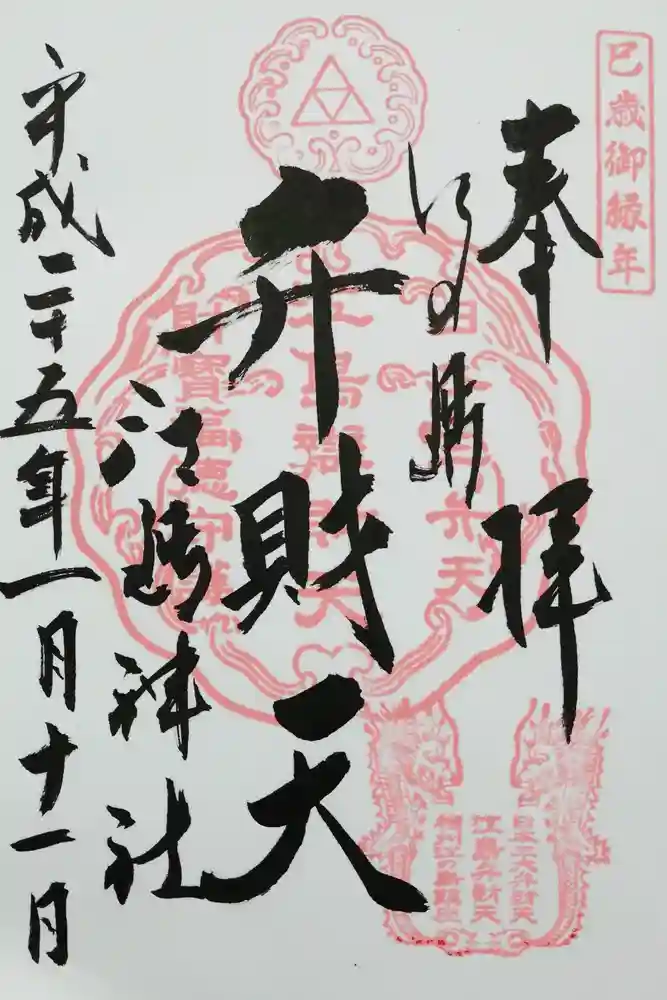 巳歳御縁年
奉拝
江の嶋
弁財天
江嶋神社
平成二十五年一月十一日
財寶福徳守護
日本三大弁財天
江島弁財天